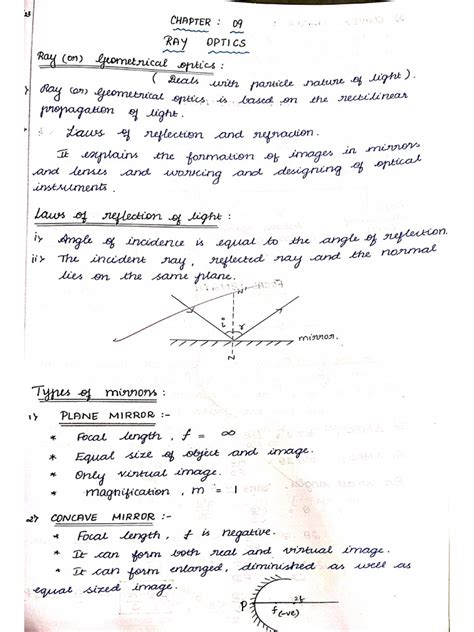 CHAPTER : 09
RAY OPTICS
Ray (or) Geometrical optics :
( Deals with particle nature of light ).
Ray (or) Geometrical optics, is based on the rectilinear
propagation of light.
Laws of reflection and refraction.
It explains the formation of images in mirrors
and lenses and working and designing of optical
instruments .
Laws of reflection of light :
i> Angle of incidence is equal to the angle of reflection
ii> The incident ray, reflected ray and the normal
lies on the same plane.
N'
i r
mirror.
N
Types of mirrors :
1) PLANE MIRROR :-
* Focal length , f = ∞
* Equal size of object and image.
* Only virtual image.
* magnification , m = 1
2) CONCAVE MIRROR :-
* Focal length , f is negative.
* It can form both real and virtual image.
* It can form enlarged, diminished as well as
equal sized image.
P
f(-ve)